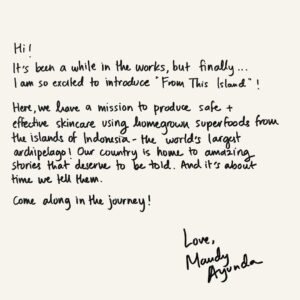 Hi!
It's been a while in the works, but finally...
I am so excited to introduce "From This Island"!
Here, we have a mission to produce safe +
effective skincare using homegrown superfoods from
the islands of Indonesia - the world's largest
archipelago! Our country is home to amazing
stories that deserve to be told. And it's about
time we tell them.
Come along in the journey!
Love,
Maudy
Ayunda